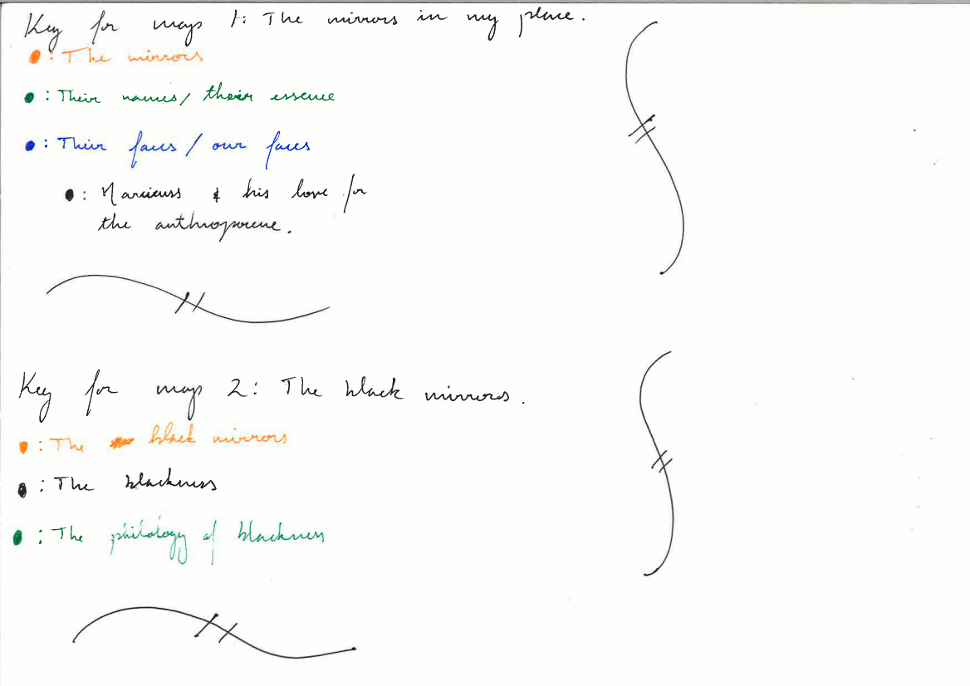 Key for map 1: The mirrors in my place.
: The mirrors
: Their names / their essence
: Their faces / our faces
: Narcicuss & his love for
the anthropocene.
Key for map 2: The black mirrors.
: The black mirrors
: The blackness
: The philology of blackness